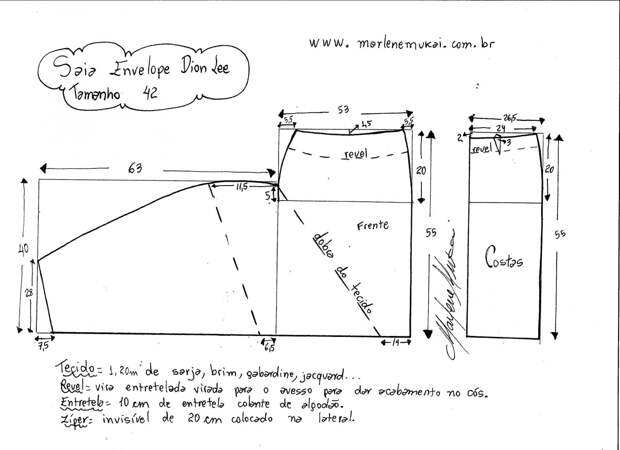 www. marlenemukai.com.br
Saia Envelope Dion Lee
Tamanho 42
53
3,5
1,5
3,5
revel
20
63
11,5
5
40
28
7,5
6,5
dobra do tecido
Frente
55
14
Marlene Mukai
26,5
24
2
3
revel
20
Costas
55
Tecido= 1,20m de sarja, brim, gabardine, jacquard...
Revel= vira entretelada virada para o avesso para dar acabamento no cós.
Entretela= 10 cm de entretela colante de algodão.
Zíper= invisível de 20 cm colocado na lateral.